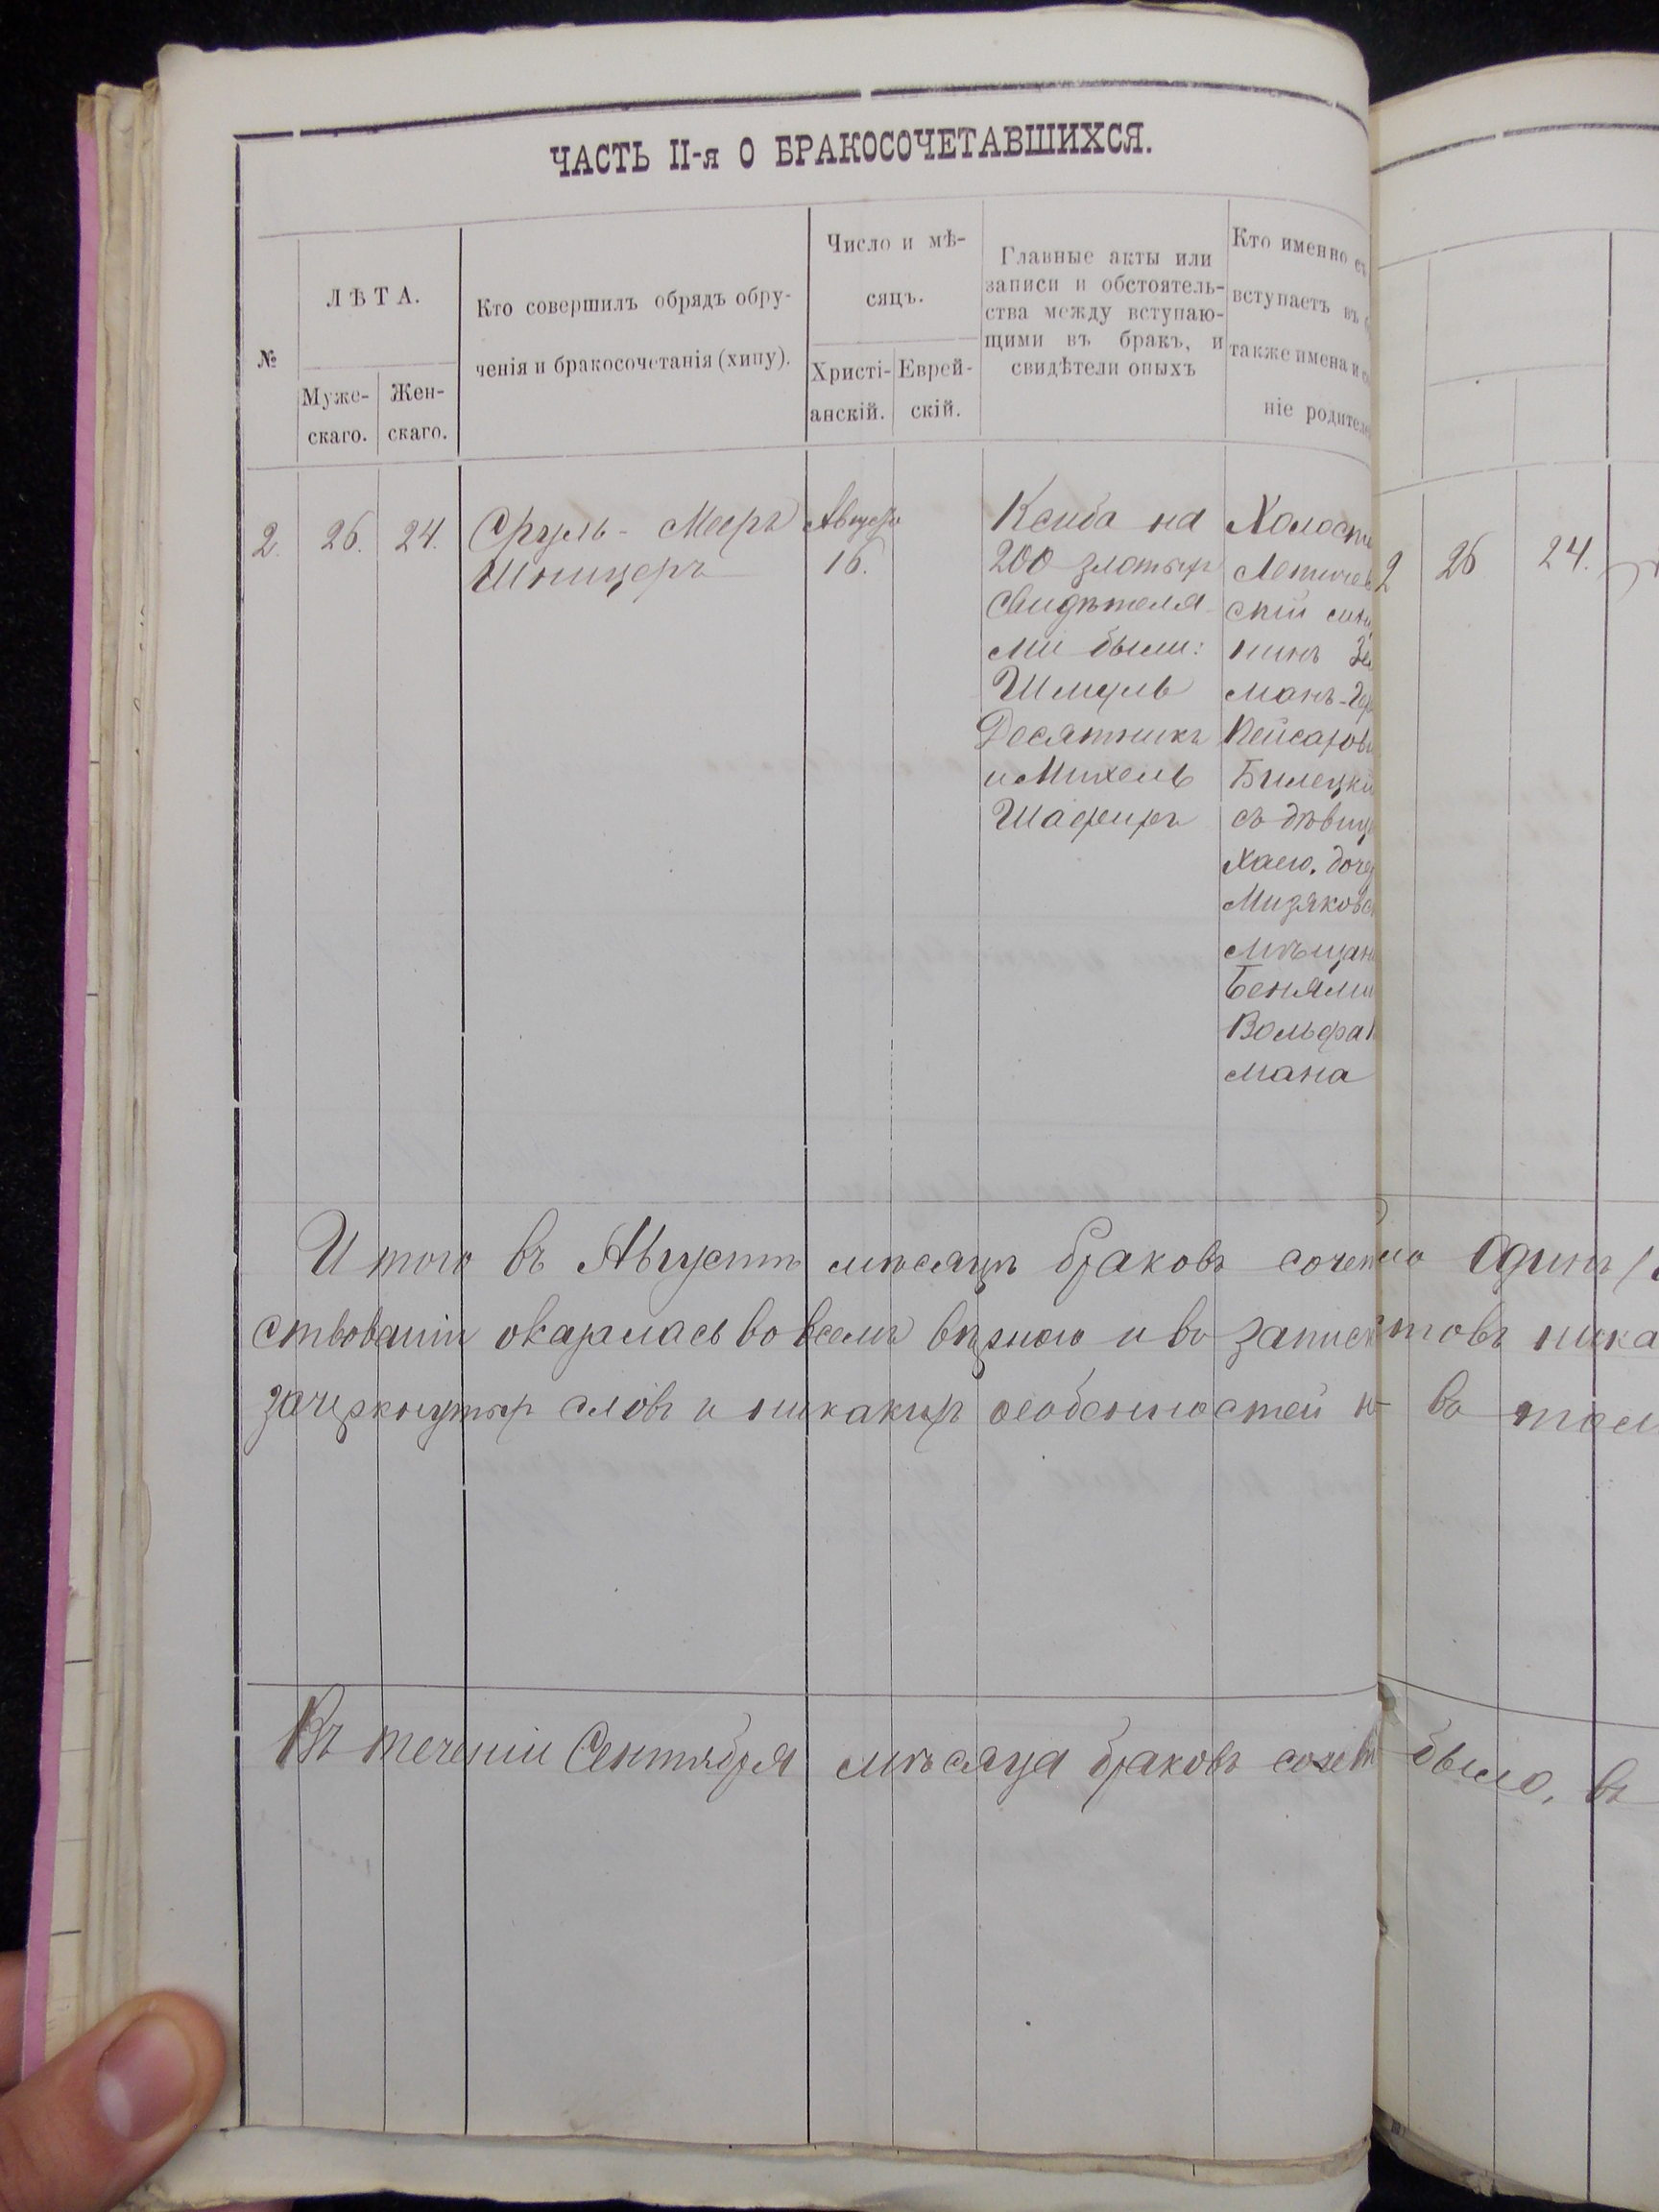 ЧАСТЬ II-я О БРАКОСОЧЕТАВШИХСЯ.
№
ЛѢТА.
Муже-
скаго.
Жен-
скаго.
Кто совершилъ обрядъ обру-
ченія и бракосочетанія (хипу).
Число и мѣ-
сяцъ.
Христі-
анскій.
Еврей-
скій.
Главные акты или
записи и обстоятель-
ства между вступаю-
щими въ бракъ, и
свидѣтели оныхъ
Кто именно съ
вступаетъ въ
также имена и со
ніе родителе
2. 26. 24.
Сруль - Мееръ
Шницеръ
Августа
16.
Ксиба на
200 злотыхъ
Свидѣтеля
ми были:
Шмуль
Десятникъ
и Михель
Шафиръ
Холосто
Летичев
скій
нинъ Зел
манъ-Гер
Пейсахови
Билецкі
съ дѣвиц
Хаею. доче
Мизяковс
мѣщан
Бенями
Вольфа
мана
2 26 24.
Итого въ Августѣ мѣсяцѣ браковъ сочет но Одинъ
ствованіи оказалась во всемъ вѣрною и въ записк товъ ника
зачеркнутыхъ словъ и никакихъ особенностей н во
Въ теченіи Сентября мѣсяца браковъ сочет было, въ